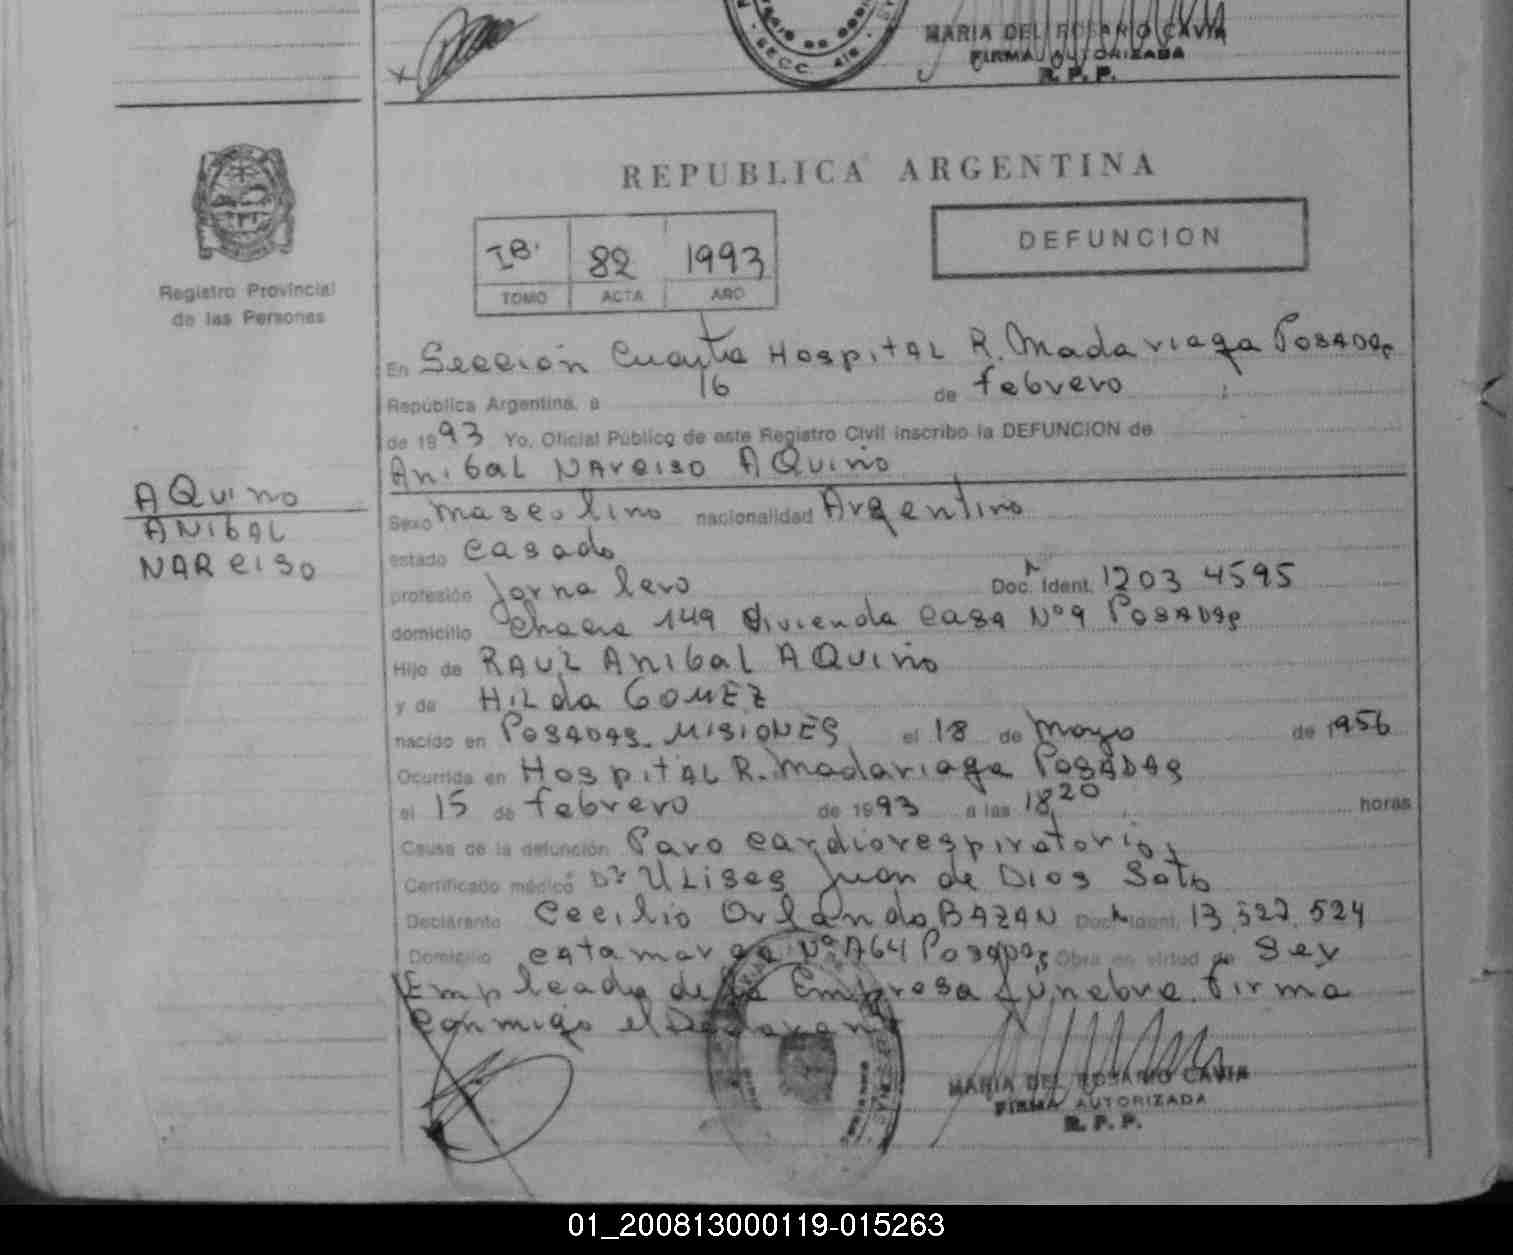 MARIA DEL ROSARIO CAVIA
FIRMA AUTORIZADA
R. P. P.
REPUBLICA ARGENTINA
Registro Provincial
de las Personas
IB. 82 1993
TOMO ACTA AÑO
DEFUNCION
En Sección Cuarta Hospital R. Madariaga Posadas
República Argentina, a 16 de febrero
de 1993 Yo, Oficial Público de este Registro Civil inscribo la DEFUNCION de
Anibal Narciso Aquino
AQuino
ANibaL
NARciso
Sexo masculino nacionalidad Argentino
estado casado
profesión Jornalero Doc. Ident. 1203 4595
domicilio Chacra 149 vivienda casa Nº 9 Posadas
Hijo de RAUL Anibal AQuino
y de HILda GOMEZ
nacido en Posadas. MISIONES el 18 de mayo de 1956
Ocurrida en HospitAL R. Madariaga Posadas
el 15 de febrero de 1993 a las 18,20 horas
Causa de la defunción Paro cardiorespiratorio,
Certificado médico Dr ULises Juan de Dios Soto
Declarante Cecilio Orlando BAZAN Doc. Ident. 13 527. 524
Domicilio Catamarca Nº Posadas Obra en virtud de Ser
Empleado de la Empresa fúnebre. firma
conmigo el Declarante
MARIA DEL ROSARIO CAVIA
FIRMA AUTORIZADA
R. P. P.
01_200813000119-015263